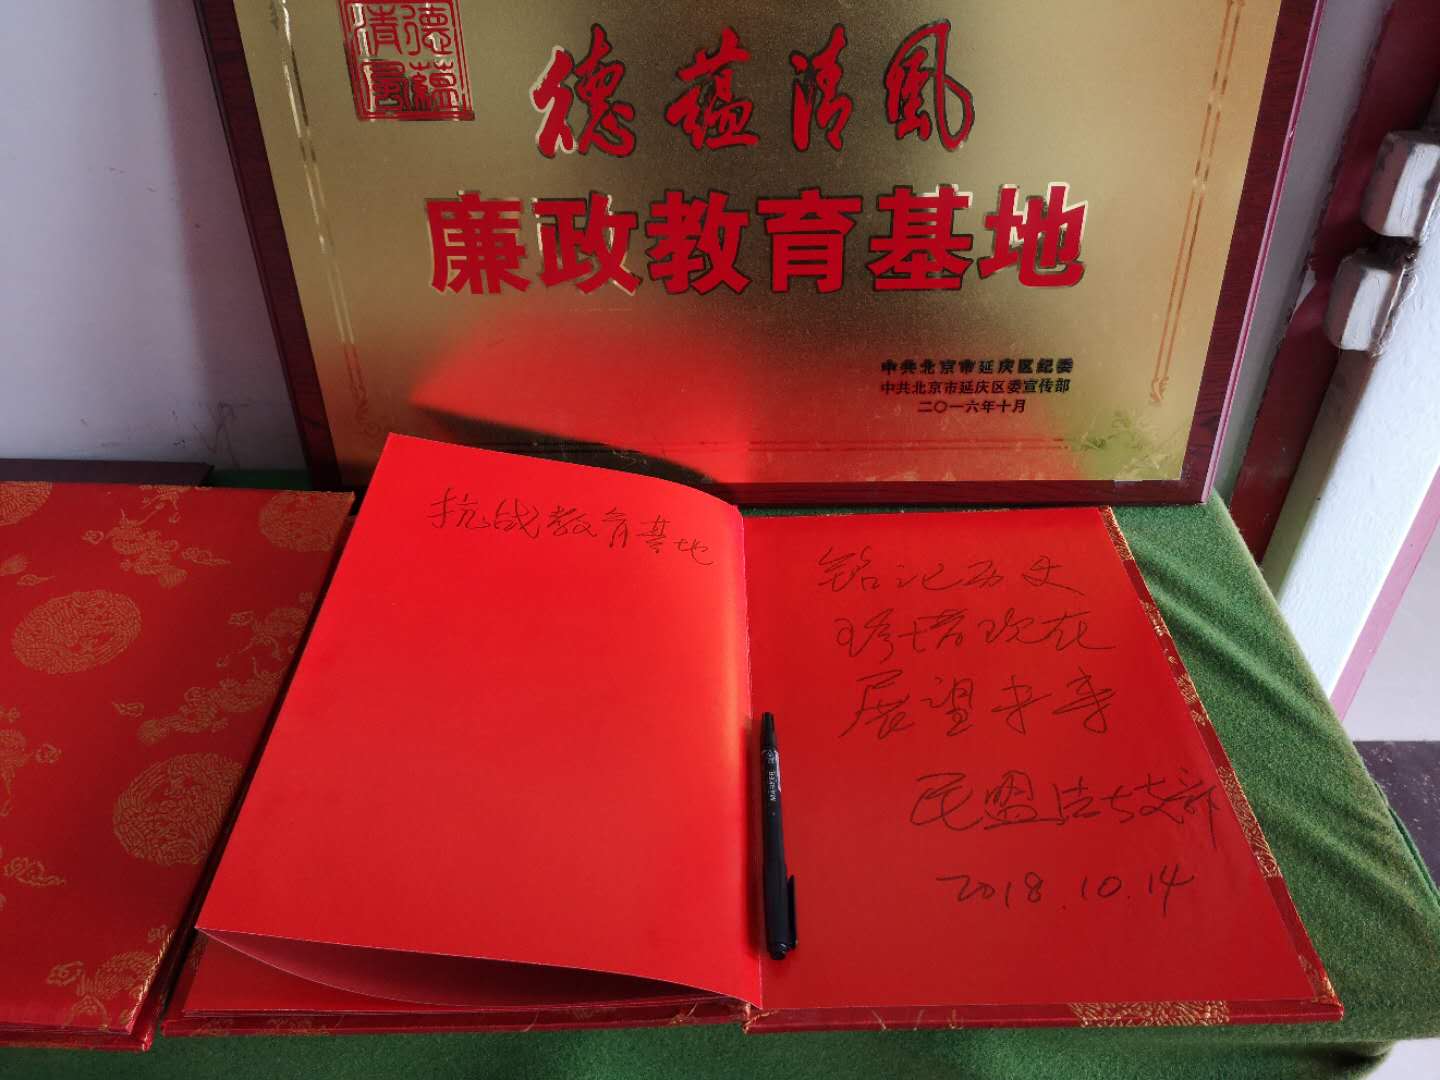 德蕴清风
德蕴清风
廉政教育基地
中共北京市延庆区纪委
中共北京市延庆区委宣传部
二〇一六年十月
抗战教育基地
铭记历史
珍惜现在
展望未来
民盟法大支部
2018.10.14
MARKER